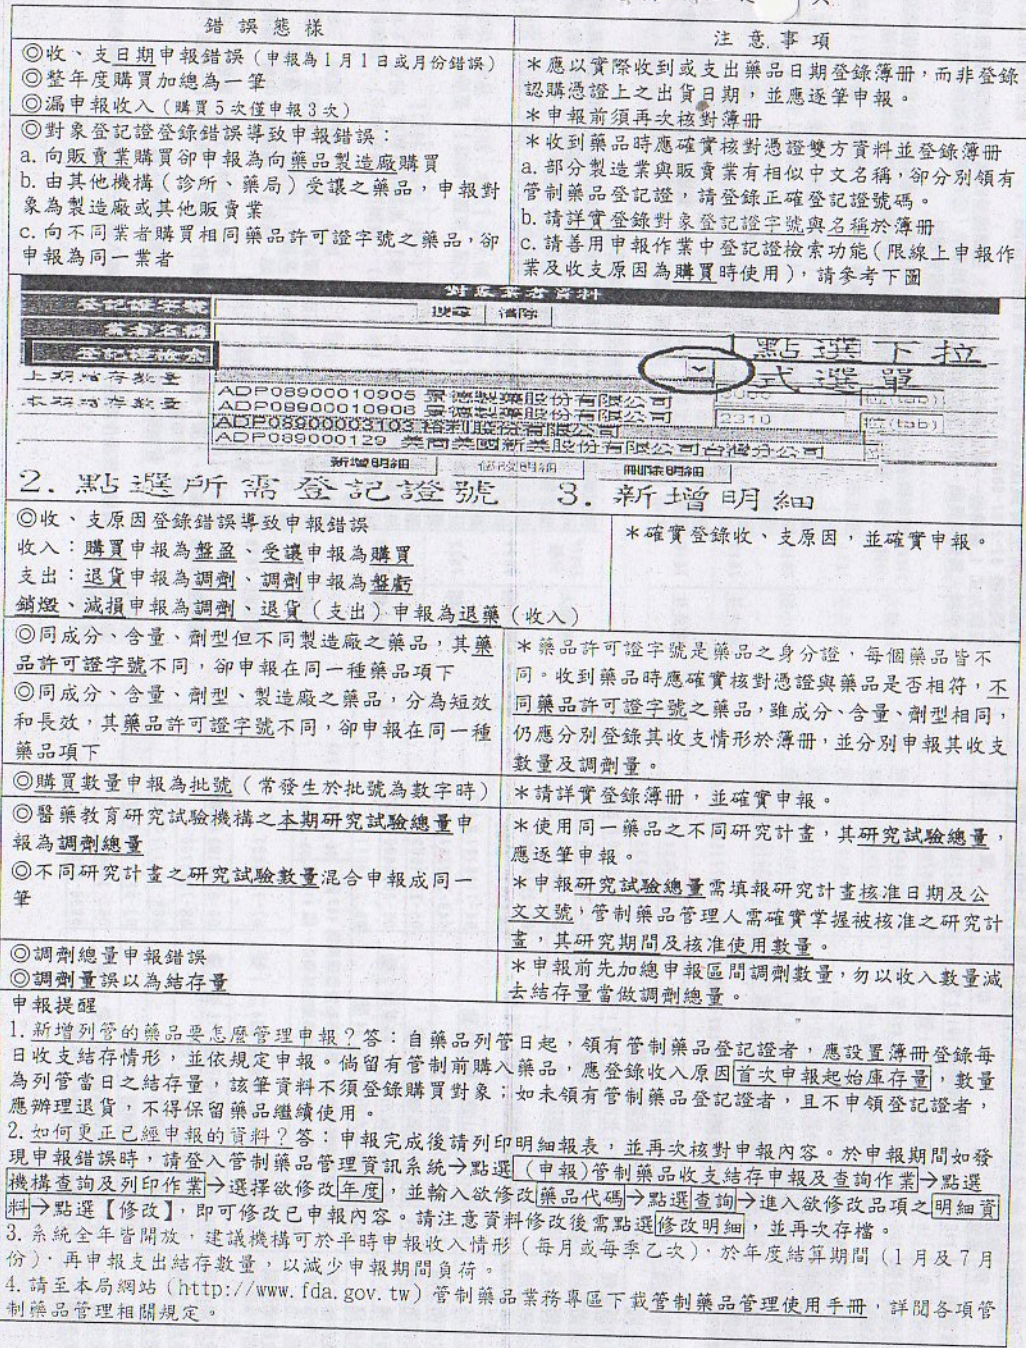 錯誤態樣
注意事項
◎收、支日期申報錯誤（申報為1月1日或月份錯誤）
◎整年度購買加總為一筆
◎漏申報收入（購買5次僅申報3次）
＊應以實際收到或支出藥品日期登錄簿冊，而非登錄
認購憑證上之出貨日期，並應逐筆申報。
＊申報前須再次核對簿冊
◎對象登記證登錄錯誤導致申報錯誤：
a. 向販賣業購買卻申報為向藥品製造廠購買
b. 由其他機構（診所、藥局）受讓之藥品，申報對
象為製造廠或其他販賣業
c. 向不同業者購買相同藥品許可證字號之藥品，卻
申報為同一業者
＊收到藥品時應確實核對憑證雙方資料並登錄簿冊
a. 部分製造業與販賣業有相似中文名稱，卻分別領有
管制藥品登記證，請登錄正確登記證號碼。
b. 請詳實登錄對象登記證字號與名稱於簿冊
c. 請善用申報作業中登記證檢索功能（限線上申報作
業及收支原因為購買時使用），請參考下圖
對象業者資料
登記證字號
搜尋 清除
業者名稱
登記證檢索
點選下拉
式選單
上期結存數量
本期結存數量
ADP08900010905
ADP08900010908
ADP08900003103
ADP089000129 美商美國新藥股份有限公司台灣分公司
2310 粒(tab)
新增明細 修改明細 刪除明細
2. 點選所需登記證號 3. 新增明細
◎收、支原因登錄錯誤導致申報錯誤
收入：購買申報為盤盈、受讓申報為購買
支出：退貨申報為調劑、調劑申報為盤虧
銷燬、減損申報為調劑、退貨（支出）申報為退藥（收入）
＊確實登錄收、支原因，並確實申報。
◎同成分、含量、劑型但不同製造廠之藥品，其藥
品許可證字號不同，卻申報在同一種藥品項下
◎同成分、含量、劑型、製造廠之藥品，分為短效
和長效，其藥品許可證字號不同，卻申報在同一種
藥品項下
＊藥品許可證字號是藥品之身分證，每個藥品皆不
同。收到藥品時應確實核對憑證與藥品是否相符，不
同藥品許可證字號之藥品，雖成分、含量、劑型相同，
仍應分別登錄其收支情形於簿冊，並分別申報其收支
數量及調劑量。
◎購買數量申報為批號（常發生於批號為數字時）
＊請詳實登錄簿冊，並確實申報。
◎醫藥教育研究試驗機構之本期研究試驗總量申
報為調劑總量
◎不同研究計畫之研究試驗數量混合申報成同一
筆
＊使用同一藥品之不同研究計畫，其研究試驗總量，
應逐筆申報。
＊申報研究試驗總量需填報研究計畫核准日期及公
文文號，管制藥品管理人需確實掌握被核准之研究計
畫，其研究期間及核准使用數量。
◎調劑總量申報錯誤
◎調劑量誤以為結存量
＊申報前先加總申報區間調劑數量，勿以收入數量減
去結存量當做調劑總量。
申報提醒
1. 新增列管的藥品要怎麼管理申報？答：自藥品列管日起，領有管制藥品登記證者，應設置簿冊登錄每
日收支結存情形，並依規定申報。倘留有管制前購入藥品，應登錄收入原因首次申報起始庫存量，數量
為列管當日之結存量，該筆資料不須登錄購買對象；如未領有管制藥品登記證者，且不申領登記證者，
應辦理退貨，不得保留藥品繼續使用。
2. 如何更正已經申報的資料？答：申報完成後請列印明細報表，並再次核對申報內容。於申報期間如發
現申報錯誤時，請登入管制藥品管理資訊系統→點選（申報)管制藥品收支結存申報及查詢作業→點選
機構查詢及列印作業→選擇欲修改年度，並輸入欲修改藥品代碼→點選查詢→進入欲修改品項之明細資
料→點選【修改】，即可修改已申報內容。請注意資料修改後需點選修改明細，並再次存檔。
3. 系統全年皆開放，建議機構可於平時申報收入情形（每月或每季乙次），於年度結算期間（1月及7月
份），再申報支出結存數量，以減少申報期間負荷。
4. 請至本局網站（http://www.fda.gov.tw）管制藥品業務專區下載管制藥品管理使用手冊，詳閱各項管
制藥品管理相關規定。